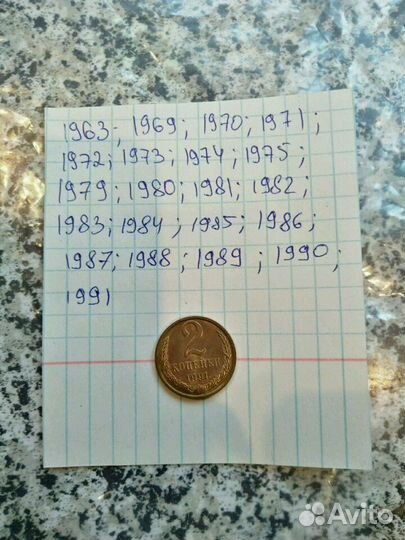 1963; 1969; 1970; 1971;
1972; 1973; 1974; 1975;
1979; 1980; 1981; 1982;
1983; 1984; 1985; 1986;
1987; 1988; 1989; 1990;
1991
2
КОПЕЙКИ
1991
Avito